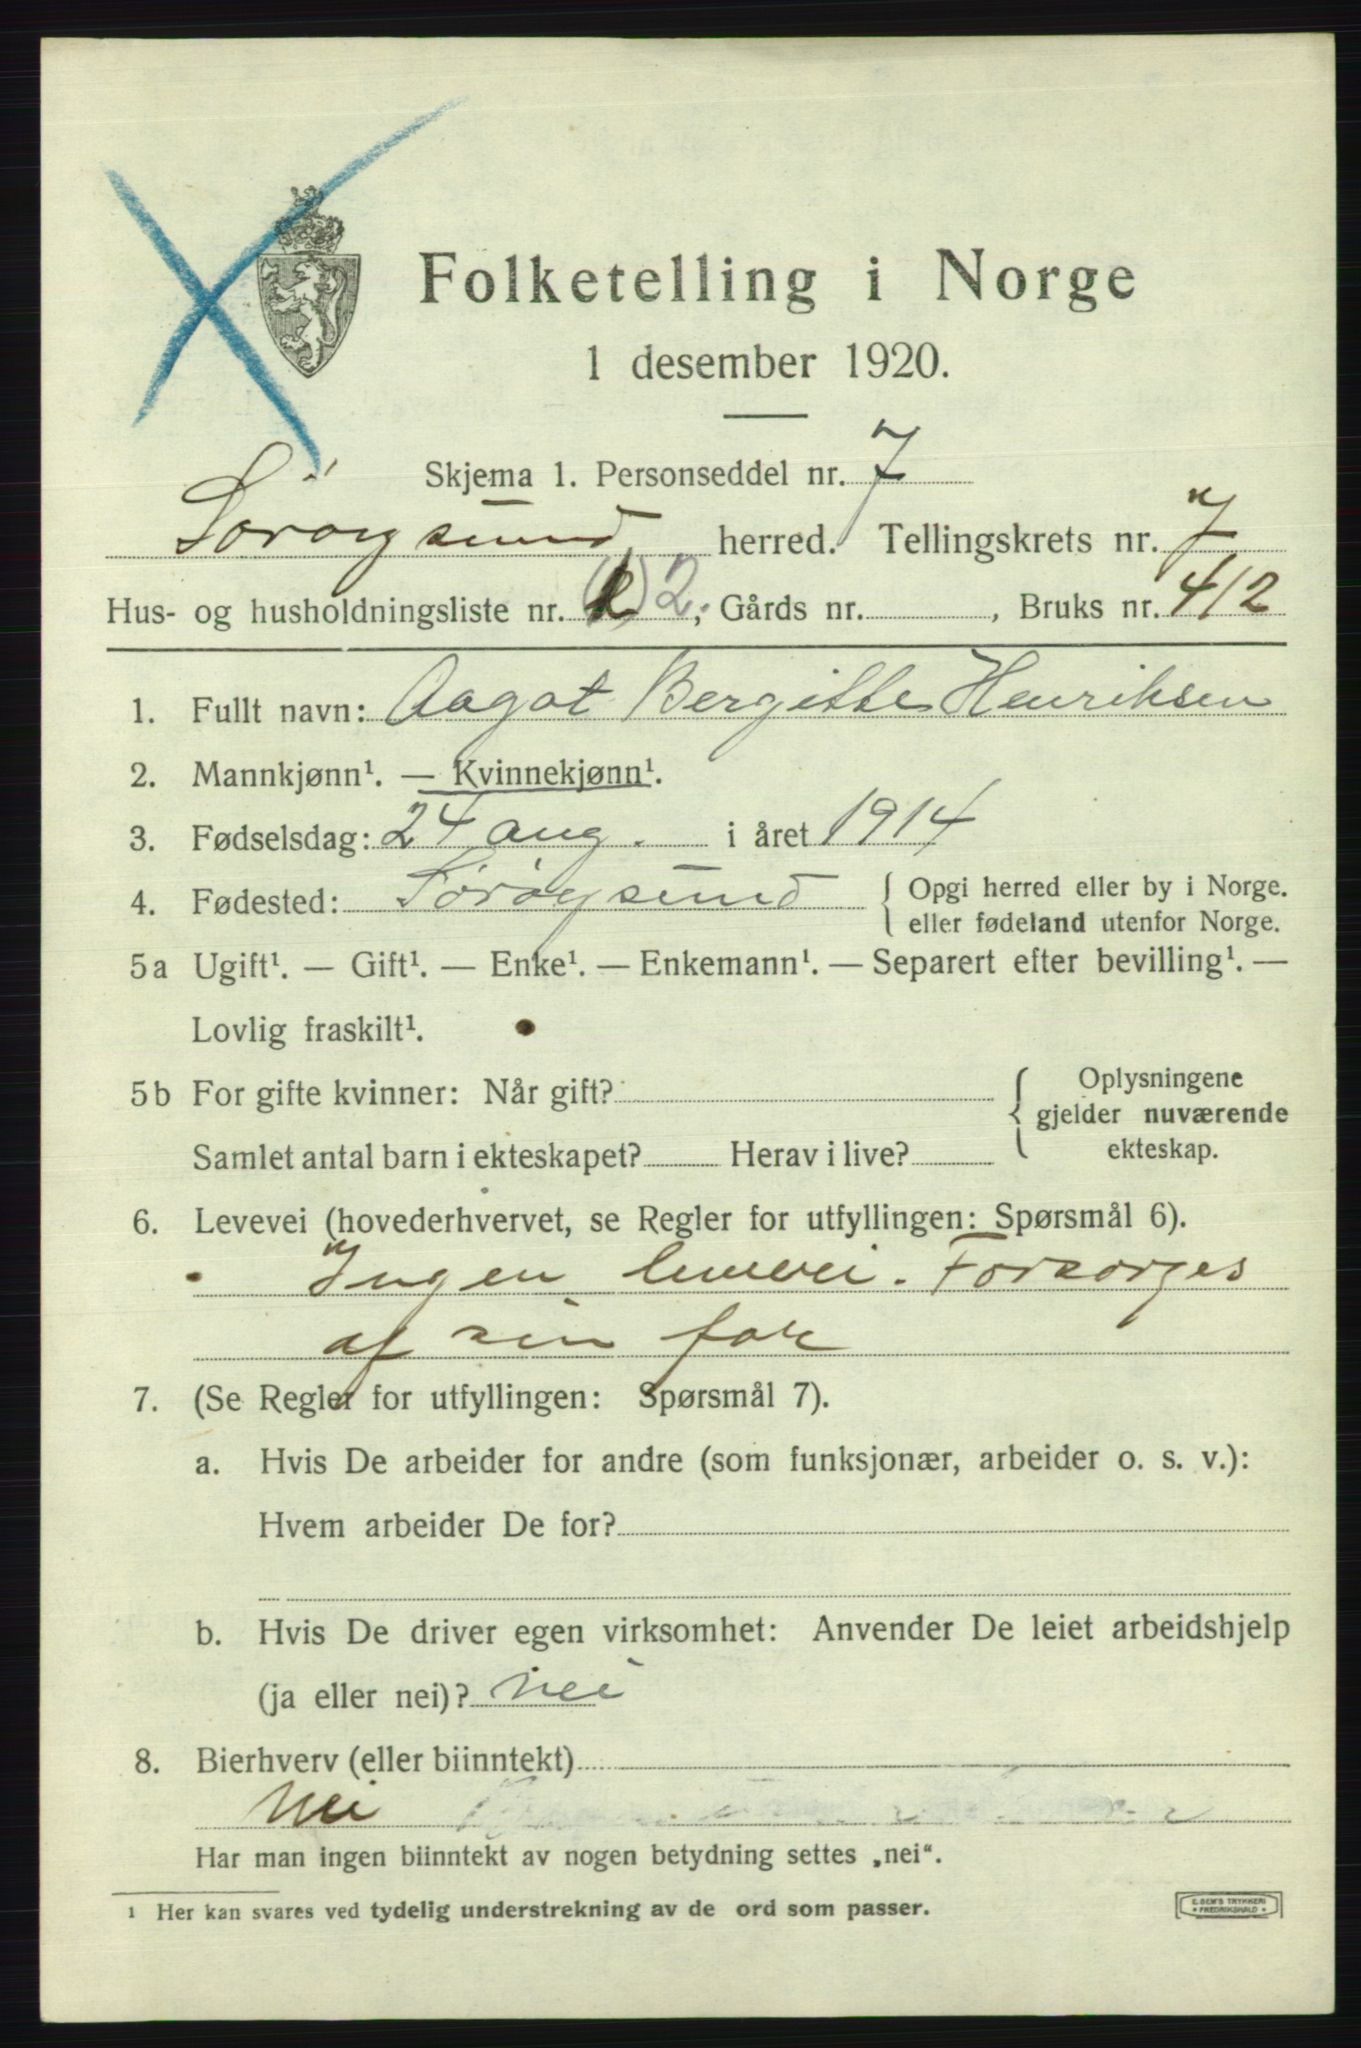 Folketelling i Norge
1 desember 1920.
Skjema 1. Personseddel nr. 7
Sørøysund herred. Tellingskrets nr. 7
Hus- og husholdningsliste nr. ( ) 2; Gårds nr. , Bruks nr. 412
1. Fullt navn: Aagot Bergitte Henriksen
2. Mannkjønn¹. — Kvinnekjønn¹.
3. Fødselsdag: 24 aug. i året 1914
4. Fødested: Sørøysund { Opgi herred eller by i Norge.
eller fødeland utenfor Norge.
5a Ugift¹. — Gift¹. — Enke¹. — Enkemann¹. — Separert efter bevilling¹. —
Lovlig fraskilt¹.
5b For gifte kvinner: Når gift? { Oplysningene
gjelder nuværende
Samlet antal barn i ekteskapet? Herav i live? ekteskap.
6. Levevei (hovederhvervet, se Regler for utfyllingen: Spørsmål 6).
Ingen levevei. Forsorges
af sin far
7. (Se Regler for utfyllingen: Spørsmål 7).
a. Hvis De arbeider for andre (som funksjonær, arbeider o. s. v.):
Hvem arbeider De for?
b. Hvis De driver egen virksomhet: Anvender De leiet arbeidshjelp
(ja eller nei)? nei
8. Bierhverv (eller biinntekt)
Nei
Har man ingen biinntekt av nogen betydning settes „nei“.
1 Her kan svares ved tydelig understrekning av de ord som passer.
E. SEM'S TRYKKERI
• FREDRIKSHALD •